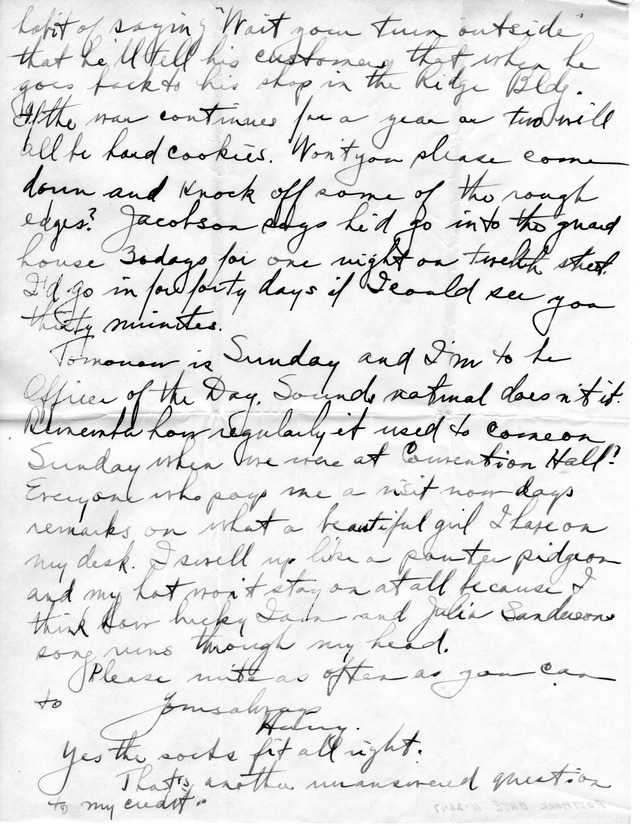 habit of saying "Wait your turn outside"
that he'll tell his customers that when he
goes back to his shop in the Ridge Bldg.
If the war continues for a year or two will
all be hard cookies. Won't you please come
down and knock off some of the rough
edges? Jacobson says he'd go into the guard
house 30 days for one night on twelfth street.
I'd go in for forty days if I could see you
thirty minutes.
Tomorrow is Sunday and I'm to be
Officer of the Day. Sounds natural doesn't it.
Remember how regularly it used to come on
Sunday when we were at Convention Hall?
Everyone who pays me a visit now days
remarks on what a beautiful girl I have on
my desk. I swell up like a pouter pidgeon
and my hat won't stay on at all because I
think how lucky I am and Julia Sandersons
song runs through my head.
Please write as often as you can
to Yours always
Harry.
Yes the socks fit all right.
That's another unanswered question
to my credit.
POSTMARK DATE